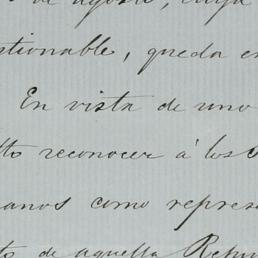 de agosto, cuya
stionable, queda en
En vista de uno
to reconocer á los
anos como repres
to de aquella Repu